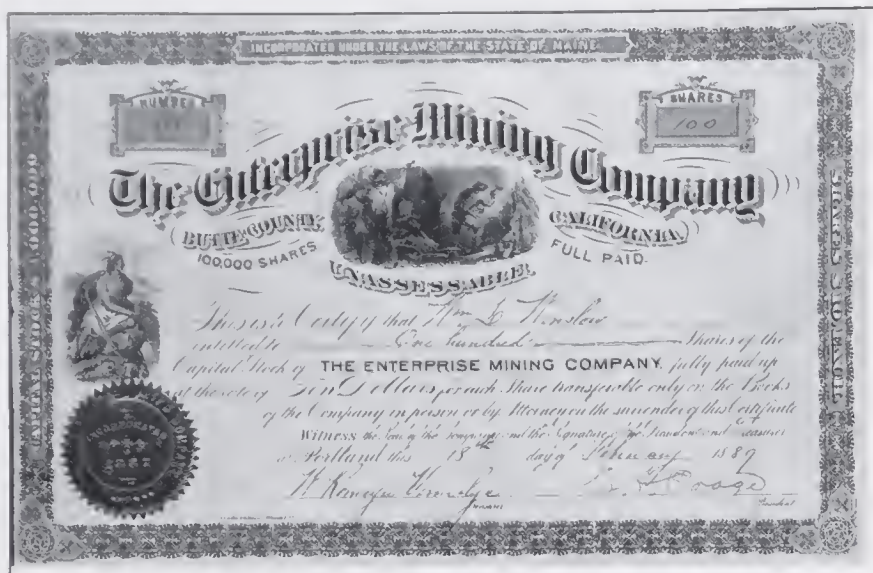 INCORPORATED UNDER THE LAWS OF THE STATE OF MAINE
NUMBER
SHARES
100
The Enterprise Mining Company
BUTTE COUNTY, CALIFORNIA,
100,000 SHARES FULL PAID.
UNASSESSABLE.
CAPITAL STOCK $1,000,000
SHARES $10, EACH
This is to Certify that Wm Winslow
entitled to One hundred Shares of the
Capital Stock of THE ENTERPRISE MINING COMPANY, fully paid up
at the rate of Ten Dollars for each Share transferable only on the Books
of the Company in person or by Attorney on the surrender of this Certificate
Witness the Seal of the Company and the Signatures of the President and Treasurer
at Portland this 18th day of 1889
INCORPORATED
President